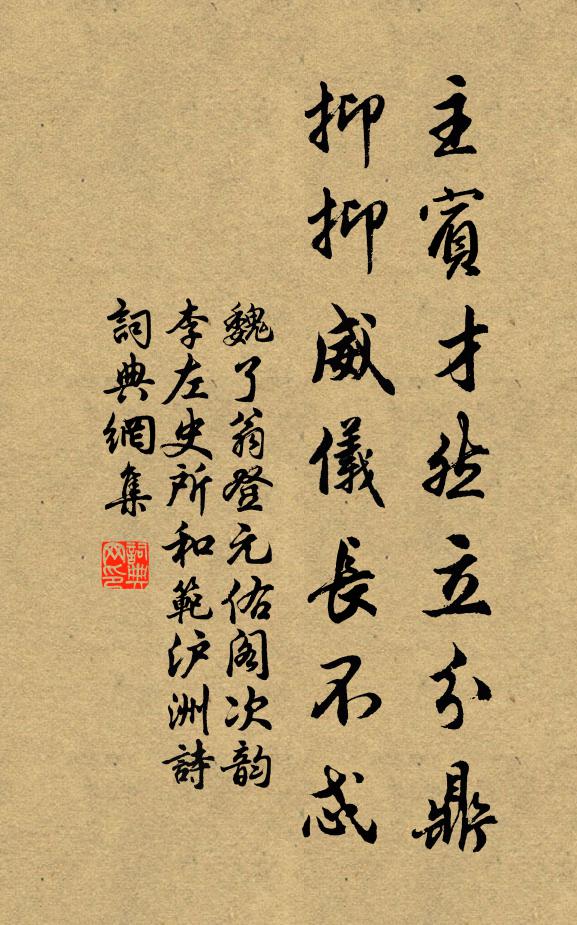 主賓才然立分鼎
抑抑威儀長不忒
魏了翁登元佑阁次韵
李左史所和範沪洲詩
詞典網集
詞典网印